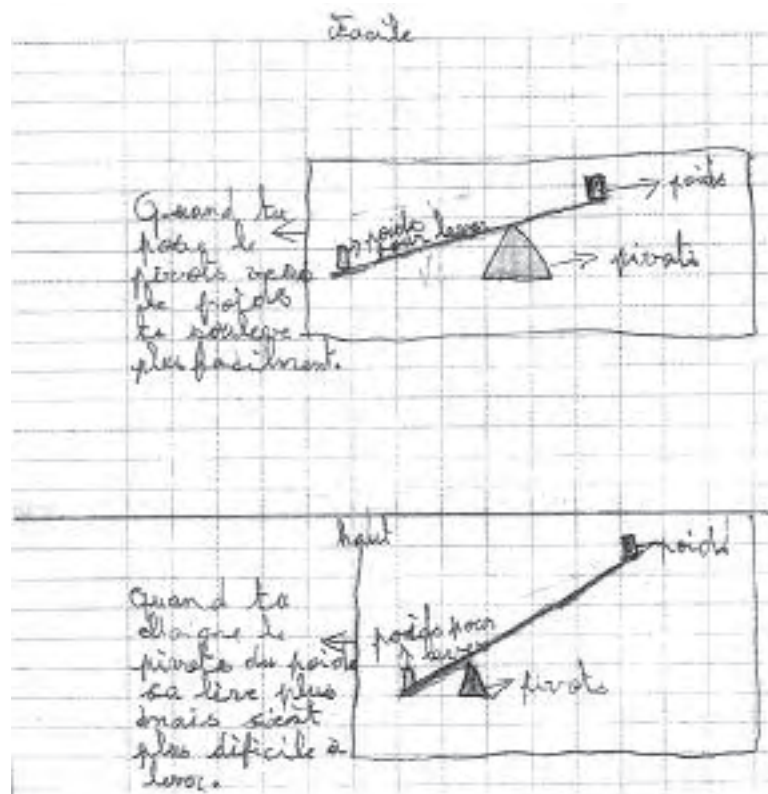 Facile
Quand tu
pose le
pivots vers
le poids
tu soulève
plus facilment.
poids
pour lever
poids
pivots
haut
Quand ta
éloigne le
pivots du poids
sa lève plus
mais s'est
plus dificile à
lever.
poids pour
lever
poids
pivots